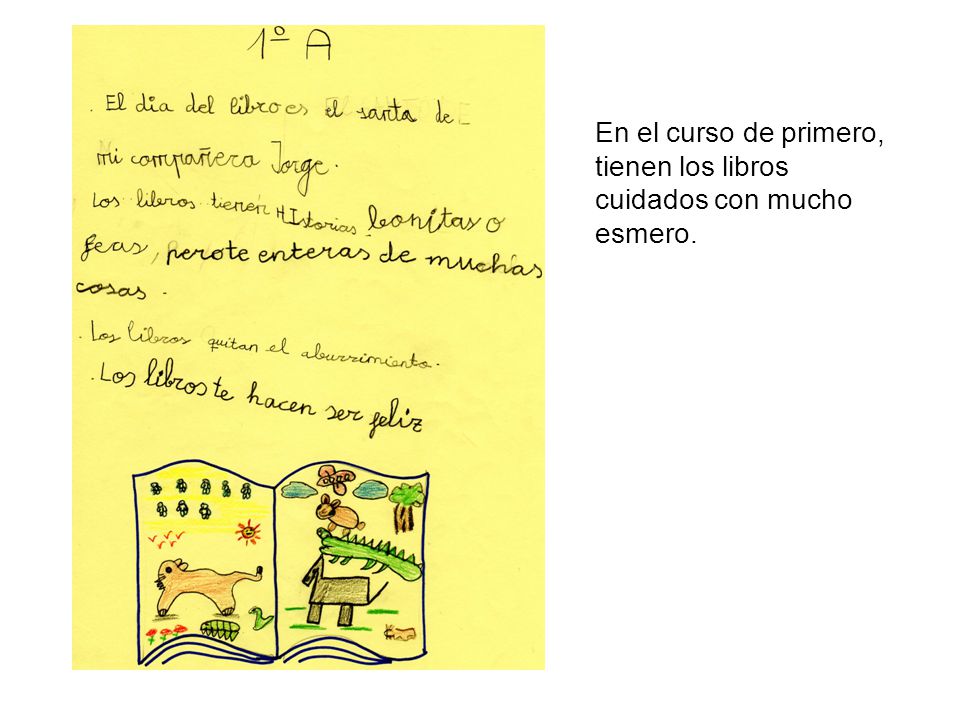 1º A
. El dia del libro es el santa de
mi compañera Jorge.
Los libros tienen HIstorias bonitas o
feas, perote enteras de muchas
cosas.
. Los libros quitan el aburrimiento.
. Los libros te hacen ser feliz
En el curso de primero,
tienen los libros
cuidados con mucho
esmero.